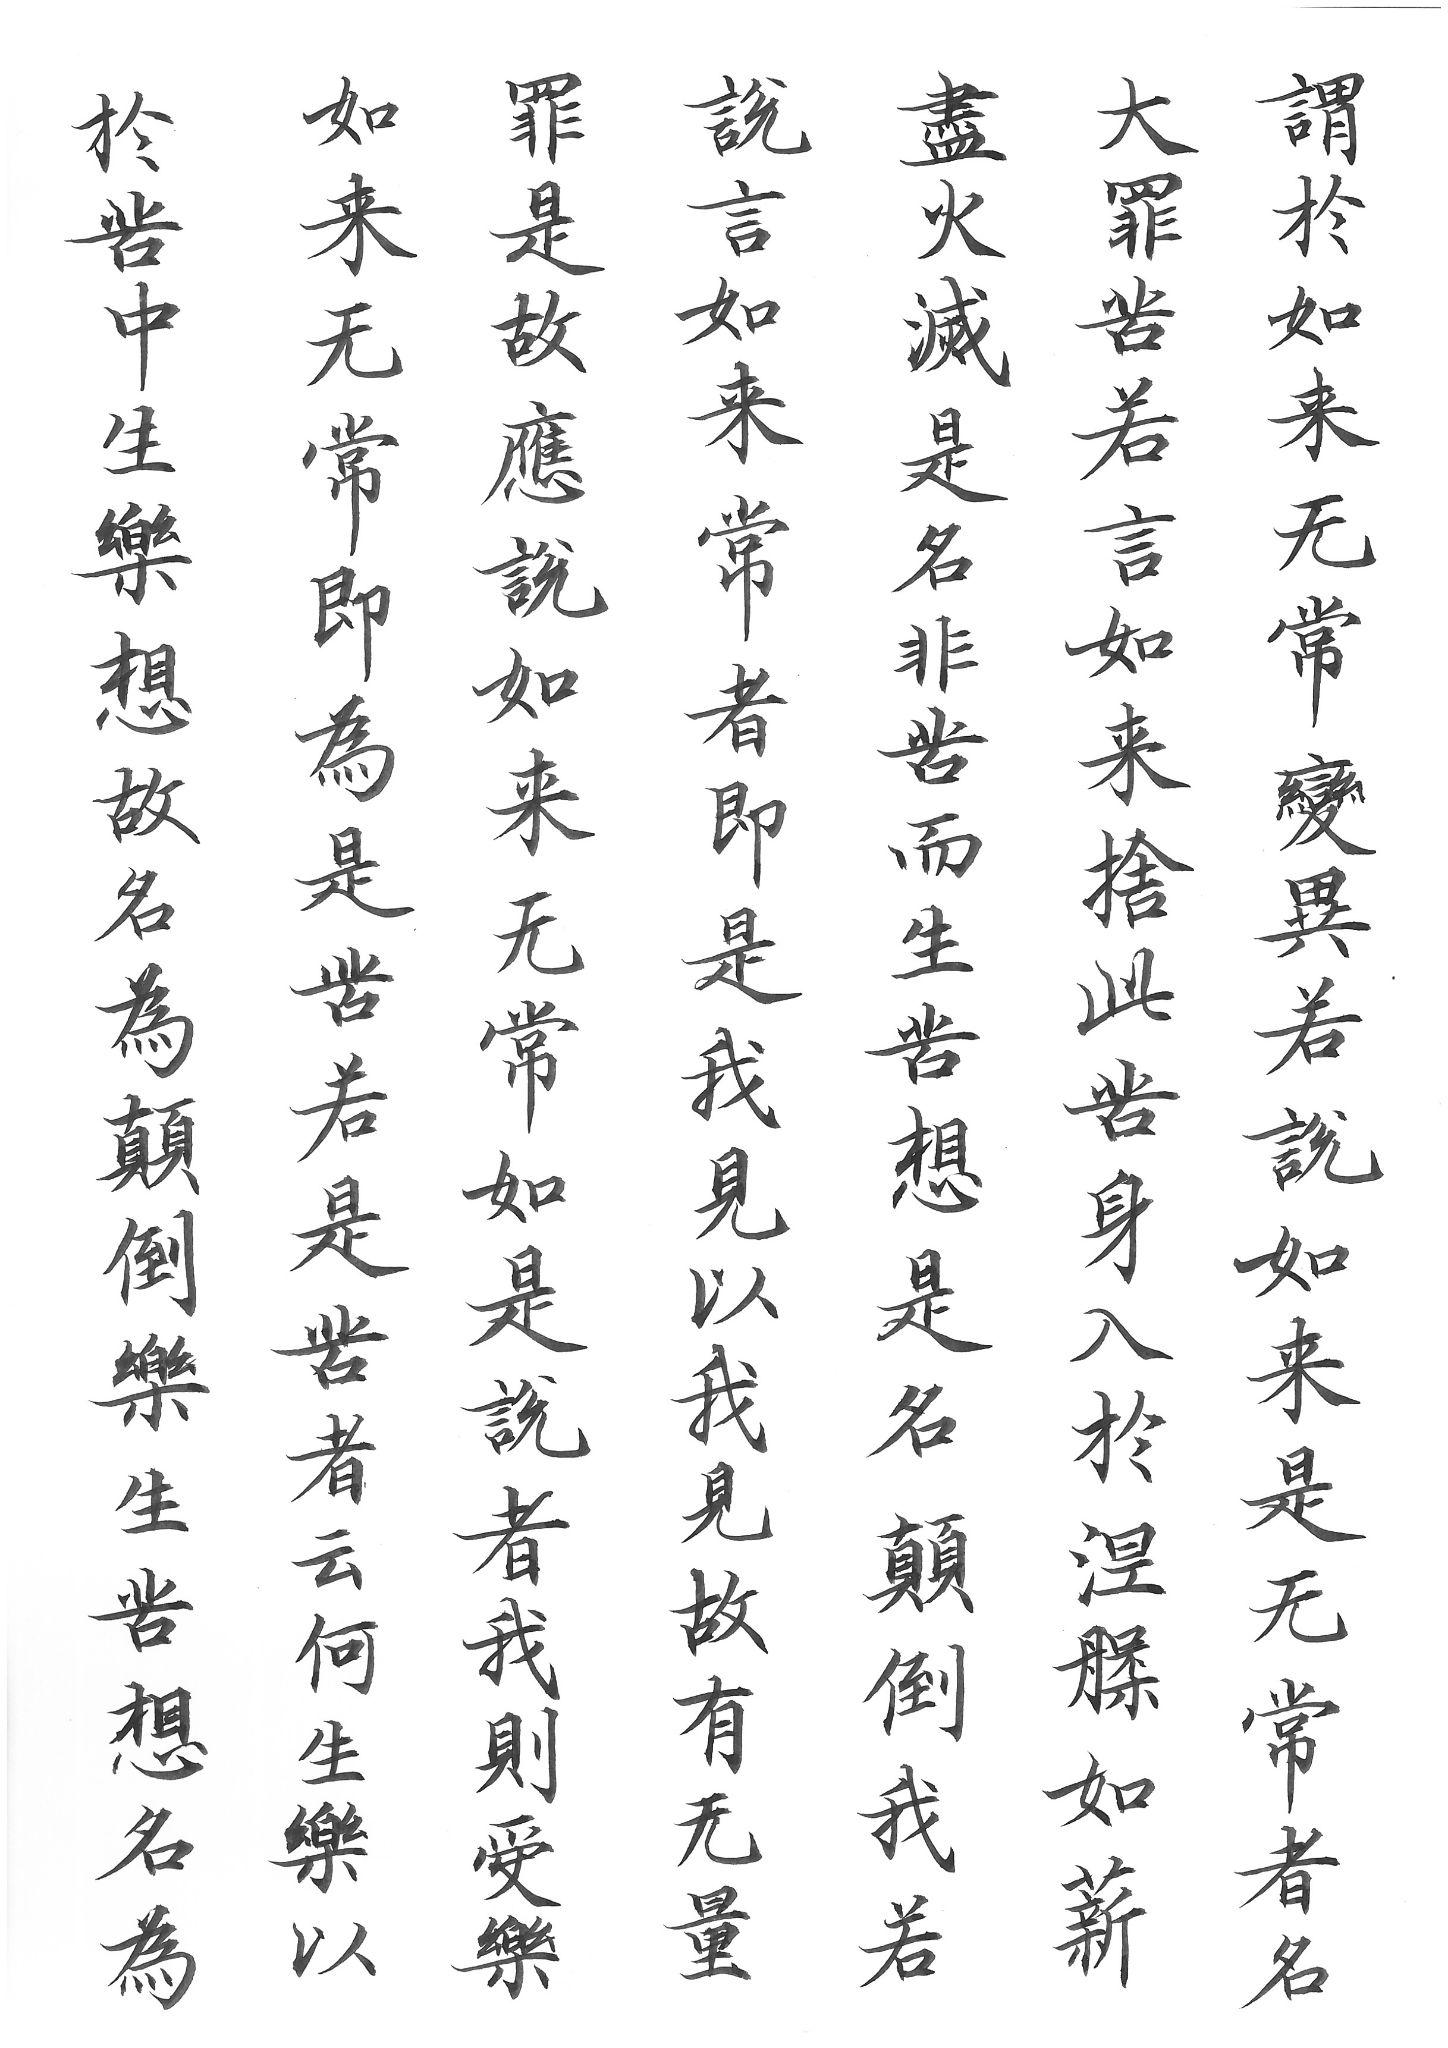 謂於如来无常變異若說如来是无常者名
大罪苦若言如来捨此苦身入於涅槃如薪
盡火滅是名非苦而生苦想是名顛倒我若
說言如来常者即是我見以我見故有无量
罪是故應說如来无常如是說者我則受樂
如来无常即為是苦若是苦者云何生樂以
於苦中生樂想故名為顛倒樂生苦想名為